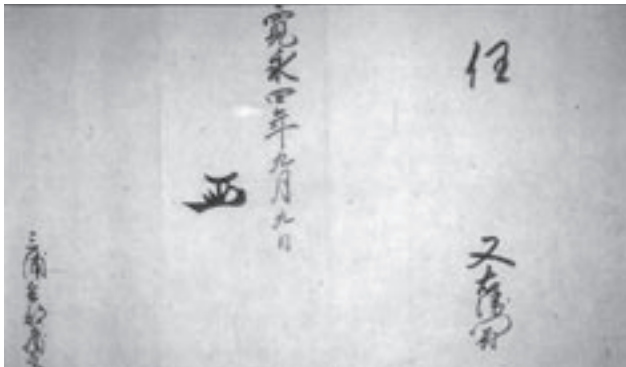 任 又衛門尉
寛永四年九月九日
三浦